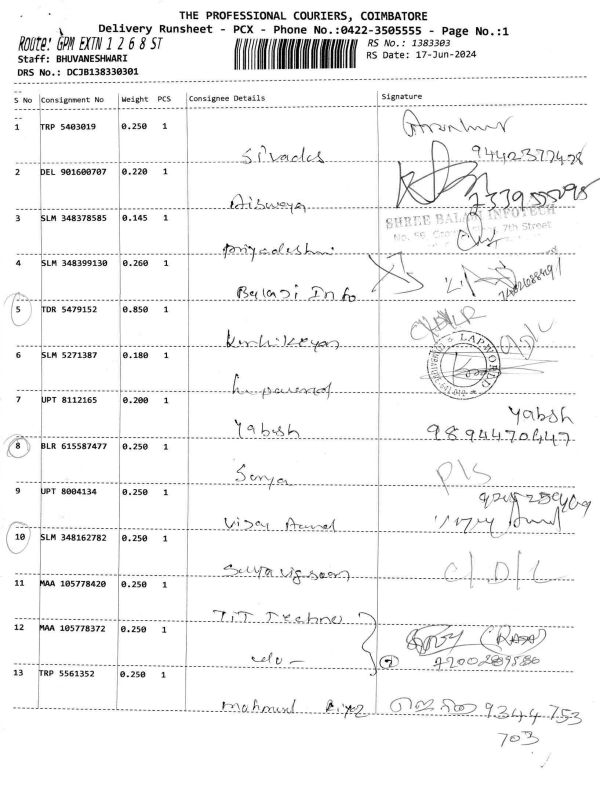 THE PROFESSIONAL COURIERS, COIMBATORE
Delivery Runsheet - PCX - Phone No.:0422-3505555 - Page No.:1
Route: GPM EXTN 1 2 6 8 ST
RS No.: 1383303
Staff: BHUVANESHWARI
RS Date: 17-Jun-2024
DRS No.: DCJB138330301
S No Consignment No Weight PCS Consignee Details Signature
1 TRP 5403019 0.250 1
2 DEL 901600707 0.220 1
Aiswarya
3 SLM 348378585 0.145 1
SHREE BALAJI INFOTECH
7th Street
4 SLM 348399130 0.260 1
Balaji Info
5 TDR 5479152 0.850 1
6 SLM 5271387 0.180 1
LAPWORLD
7 UPT 8112165 0.200 1
Yabesh
Yabesh
9894470447
8 BLR 615587477 0.250 1
P/S
9 UPT 8004134 0.250 1
Vijay Anand
10 SLM 348162782 0.250 1
C/D/L
11 MAA 105778420 0.250 1
TiT Techno
12 MAA 105778372 0.250 1
-do-
2
13 TRP 5561352 0.250 1
9344 753
703